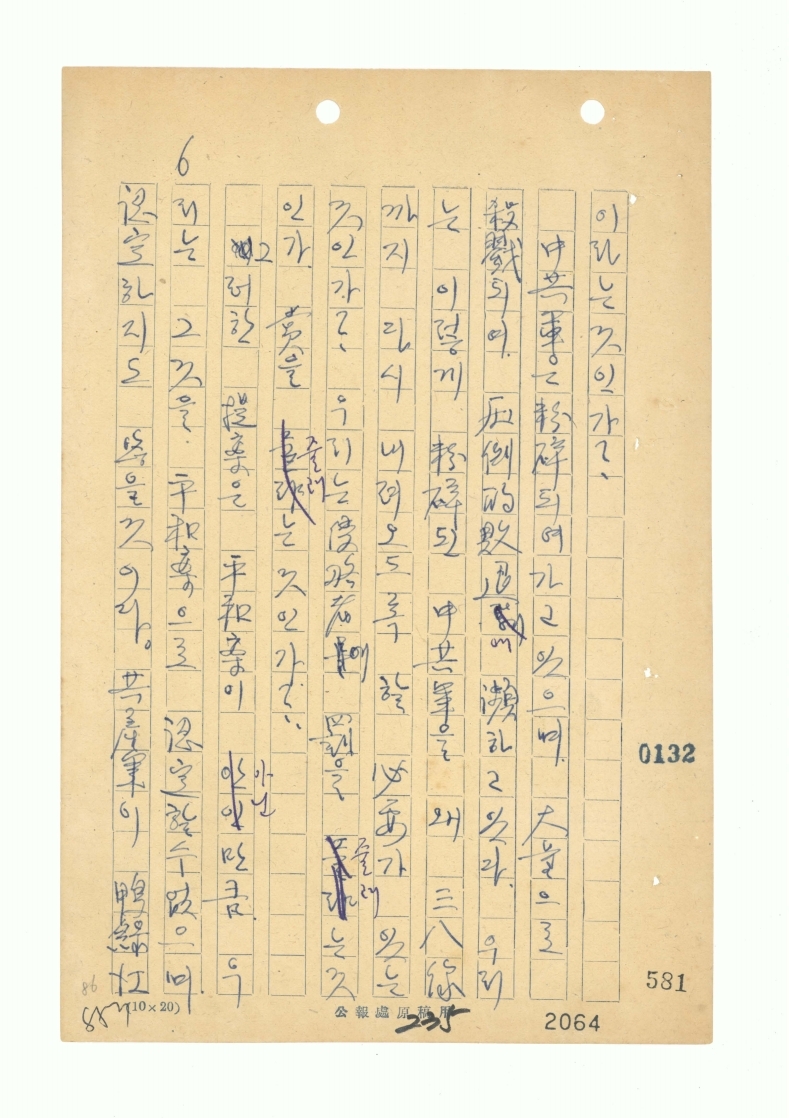 6
이라는것인가?
中共軍은 粉碎되여가고있으며. 大量으로
殺戮되여. 壓倒的敗退에 瀕하고있다. 우리
는 이렇게 粉碎된 中共軍을 왜 三八線
까지 다시 내려오도록 할 必要가 있는
것인가? 우리는侵略者에 罰을 줄래는것
인가. 賞을 줄래는것인가?
그러한 提案은 平和案이 아닌만큼. 우
리는 그것을. 平和案으로 認定할수없으며.
認定하지도 않을것이다。共産軍이 鴨綠江
0132
581
2064
86
(10×20)
公報處原稿用
235